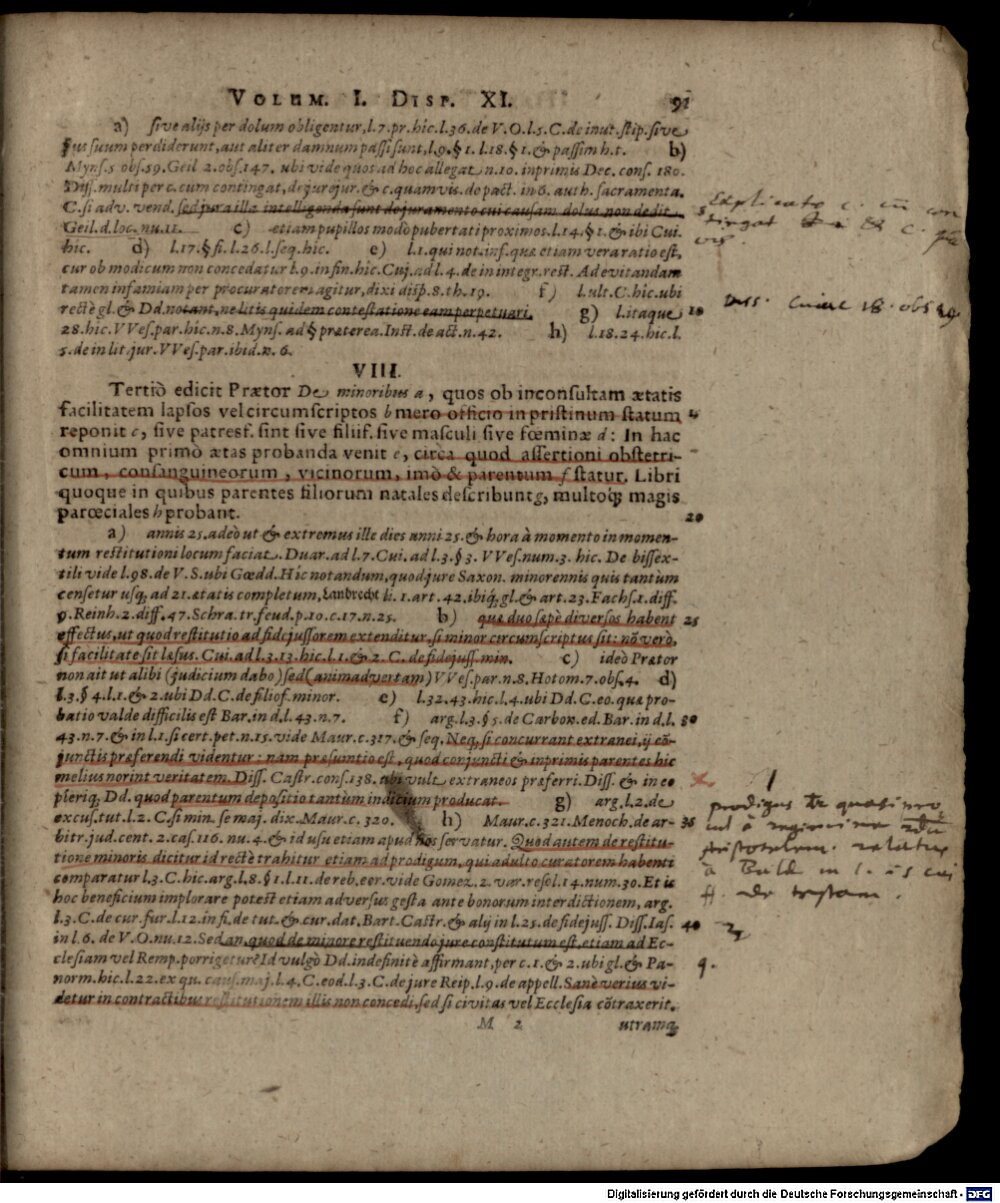 VOLUM. I. DISP. XI. 91
a) sive alijs per dolum obligentur, l.7.pr.hic.l.36.de V.O.l.5.C.de inut.stip.sive
jus suum perdiderunt, aut aliter damnum passi sunt, l.9.§ 1.l.18.§ 1.& passim h.t. b)
Myns.5 obs.59.Geil 2.obs.147. ubi vide quos ad hoc allegat n.10. inprimis Dec. cons. 180.
Diss. multi per c. cum contingat, de jurejur. & c. quamvis. de pact. in 6. auth. sacramenta.
C. si adv. vend. sed jura illa intelligenda sunt de juramento cui causam dolus non dedit. 5
Geil. d. loc. nu. 11. c) etiam pupillos modò pubertati proximos. l.14.§ 1.& ibi Cui.
hic. d) l.17.§ fi. l.26. l. seq. hic. e) l.1. qui not. inf. quæ etiam vera ratio est,
cur ob modicum non concedatur l.9. in fin. hic. Cuj. ad l. 4. de in integr. rest. Ad evitandam
tamen infamiam per procuratorem agitur, dixi disp. 8. th. 19. f) l. ult. C. hic. ubi
rectè gl. & Dd. notant, ne litis quidem contestatione eam perpetuari. g) l. itaque 10
28. hic. VVes. par. hic. n. 8. Myns. ad § præterea. Inst. de act. n. 42. h) l. 18. 24. hic. l.
5. de in lit. jur. VVes. par. ibid. n. 6.
VIII.
Tertiò edicit Prætor De minoribus a, quos ob inconsultam ætatis
facilitatem lapsos vel circumscriptos b mero officio in pristinum statum
reponit c, sive patresf. sint sive filiif. sive masculi sive fœminæ d: In hac
omnium primò ætas probanda venit e, circa quod assertioni obstetri-
cum, consanguineorum, vicinorum, imò & parentum f statur. Libri
quoque in quibus parentes filiorum natales describunt g, multoq; magis
parœciales h probant. 20
a) annis 25. adeò ut & extremus ille dies anni 25. & hora à momento in momen-
tum restitutioni locum faciat. Duar. ad l.7. Cui. ad l.3. § 3. VVes. num. 3. hic. De bissex-
tili vide l. 98. de V. S. ubi Gœdd. Hic notandum, quod jure Saxon. minorennis quis tantum
censetur usq; ad 21. ætatis completum, Landrecht li. 1. art. 42. ibiq; gl. & art. 23. Fachs. 1. diff.
9. Reinh. 2. diff. 47. Schra. tr. feud. p. 10. c. 17. n. 25. b) quæ duo sæpè diversos habent 25
effectus, ut quod restitutio ad fidejussorem extenditur, si minor circumscriptus sit: nō verò,
si facilitate sit læsus. Cui. ad l. 3. 13. hic. l. 1. & 2. C. de fidejuss. min. c) ideò Prætor
non ait ut alibi (judicium dabo) sed (animadvertam) VVes. par. n. 8. Hotom. 7. obs. 4. d)
l. 3. § 4. l. 1. & 2. ubi Dd. C. de filiof. minor. e) l. 32. 43. hic. l. 4. ubi Dd. C. eo. quæ pro-
batio valde difficilis est Bar. in d. l. 43. n. 7. f) arg. l. 3. § 5. de Carbon. ed. Bar. in d. l. 30
43. n. 7. & in l. 1. si cert. pet. n. 15. vide Maur. c. 317. & seq. Neq; si concurrant extranei, ij cō-
junctis præferendi videntur: nam præsumtio est, quod conjuncti & inprimis parentes hic
melius norint veritatem. Diss. Castr. cons. 138. ubi vult extraneos præferri. Diss. & in eo
pleriq; Dd. quod parentum depositio tantùm indicium producat. g) arg. l. 2. de
excus. tut. l. 2. C. si min. se maj. dix. Maur. c. 320. h) Maur. c. 321. Menoch. de ar- 35
bitr. jud. cent. 2. cas. 116. nu. 4. & id usu etiam apud nos servatur. Quod autem de restitu-
tione minoris dicitur id rectè trahitur etiam ad prodigum, qui adulto curatorem habenti
comparatur l. 3. C. hic. arg. l. 8. § 1. l. 11. de reb. eor. vide Gomez. 2. var. resol. 14. num. 30. Et is
hoc beneficium implorare potest etiam adversus gesta ante bonorum interdictionem, arg.
l. 3. C. de cur. fur. l. 12. in fi. de tut. & cur. dat. Bart. Castr. & alij in l. 25. de fidejuss. Diss. Jas. 40
in l. 6. de V. O. nu. 12. Sed an, quod de minore restituendo jure constitutum est, etiam ad Ec-
clesiam vel Remp. porrigetur? Id vulgò Dd. indefinitè affirmant, per c. 1. & 2. ubi gl. & Pa-
norm. hic. l. 22. ex qu. caus. maj. l. 4. C. eod. l. 3. C. de jure Reip. l. 9. de appell. Sanè verius vi-
detur in contractibus restitutionem illis non concedi, sed si civitas vel Ecclesia cōtraxerit,
M 2 utramq;
prodigus
relatus
Digitalisierung gefördert durch die Deutsche Forschungsgemeinschaft - DFG